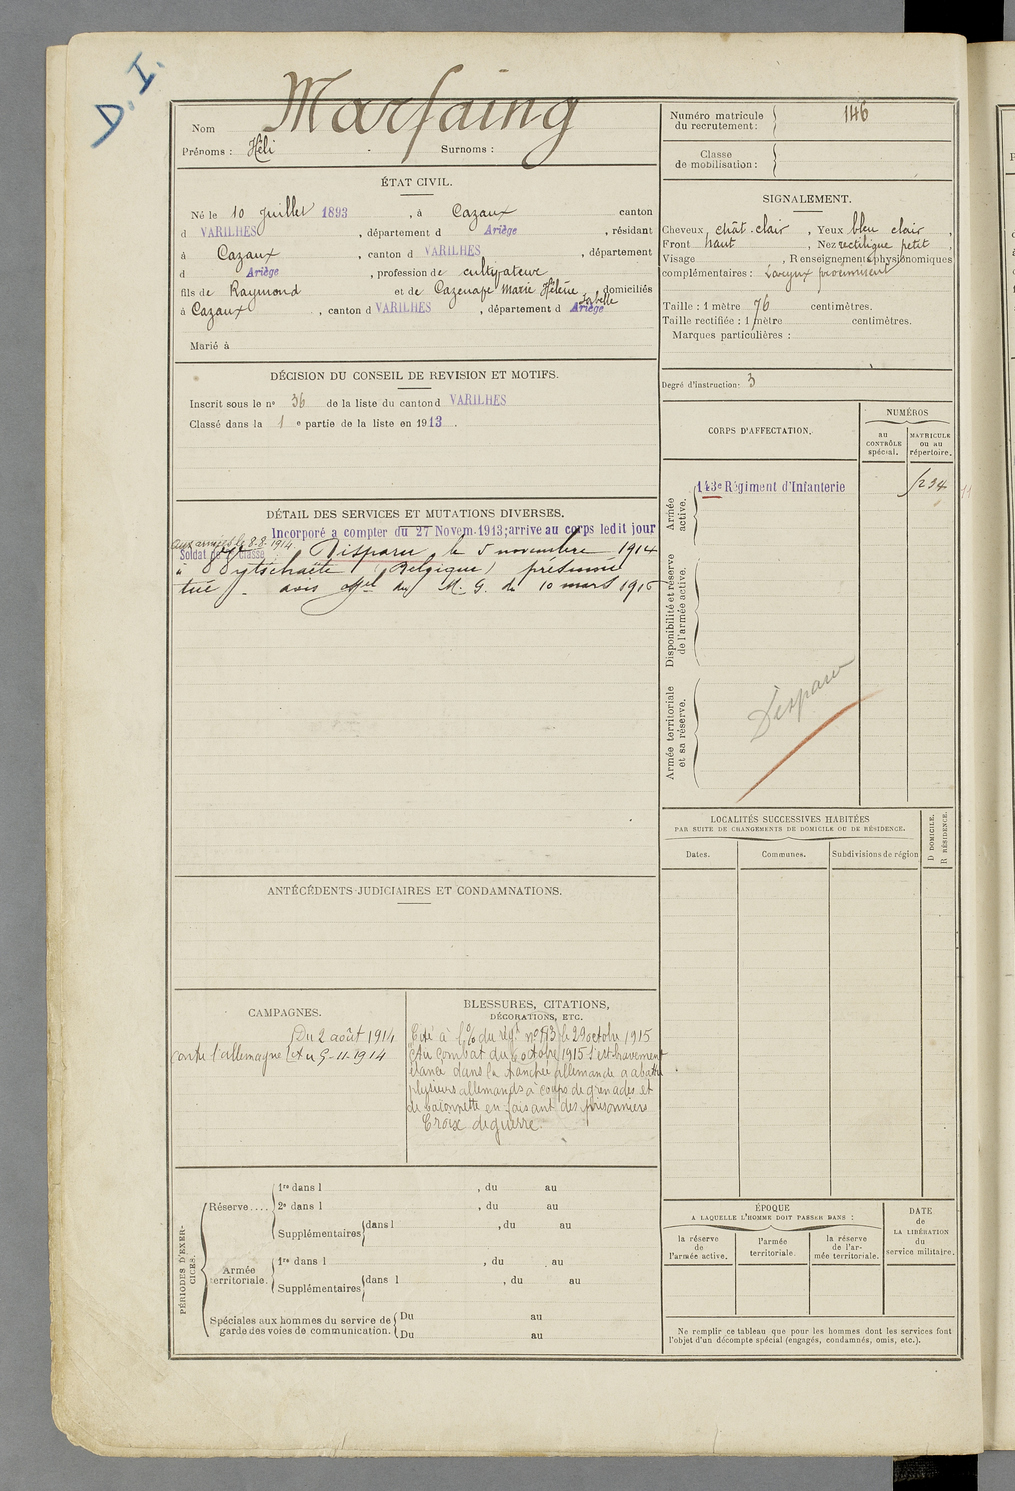 D. I.
Nom Marfaing
Prénoms : Héli Surnoms :
ÉTAT CIVIL.
Né le 10 Juillet 1893, à Cazaux canton
d VARILHES, département d Ariège, résidant
à Cazaux, canton d VARILHES, département
d Ariège, profession de cultivateur
fils de Raymond et de Cazenave Marie Hélène, domiciliés
à Cazaux, canton d VARILHES, département d Ariège
Marié à
DÉCISION DU CONSEIL DE REVISION ET MOTIFS.
Inscrit sous le nº 36 de la liste du canton d VARILHES
Classé dans la 1 e partie de la liste en 1913.
DÉTAIL DES SERVICES ET MUTATIONS DIVERSES.
Incorporé a compter du 27 Novem. 1913; arrive au corps ledit jour
Aux armées le 8-8-1914
Soldat de 2e classe Disparu le 5 novembre 1914
à Wytschaëte (Belgique) présumé
tué - avis offel du M. G. du 10 mars 1916
ANTÉCÉDENTS JUDICIAIRES ET CONDAMNATIONS.
CAMPAGNES.
Du 2 août 1914
contre l'allemagne Au 5-11-1914
BLESSURES, CITATIONS,
DÉCORATIONS, ETC.
Cité à l'o/ du régt nº 143 le 29 octobre 1915
Au combat du 6 octobre 1915 s'est bravement
élancé dans la tranchée allemande a abattu
plusieurs allemands à coups de grenades et
de baïonnette en faisant des prisonniers
Croix de guerre.
PÉRIODES D'EXERCICES.
Réserve.... 1re dans l , du au
2e dans l , du au
Supplémentaires dans l , du au
Armée territoriale. 1re dans l , du au
Supplémentaires dans l , du au
Spéciales aux hommes du service de garde des voies de communication. Du au
Du au
Numéro matricule du recrutement : 146
Classe de mobilisation :
SIGNALEMENT.
Cheveux chât. clair, Yeux bleu clair,
Front haut, Nez rectiligne petit,
Visage , Renseignements physionomiques
complémentaires : Larynx proéminent
Taille : 1 mètre 76 centimètres.
Taille rectifiée : 1 mètre centimètres.
Marques particulières :
Degré d'instruction : 3
CORPS D'AFFECTATION.
NUMÉROS
au CONTRÔLE spécial.
MATRICULE ou au répertoire.
Armée active.
143e Régiment d'Infanterie
Disponibilité et réserve de l'armée active.
Armée territoriale et sa réserve.
Disparu
LOCALITÉS SUCCESSIVES HABITÉES
PAR SUITE DE CHANGEMENTS DE DOMICILE OU DE RÉSIDENCE.
Dates. Communes. Subdivisions de région
D DOMICILE.
R RÉSIDENCE.
ÉPOQUE
A LAQUELLE L'HOMME DOIT PASSER DANS :
la réserve de l'armée active.
l'armée territoriale.
la réserve de l'armée territoriale.
DATE de LA LIBÉRATION du service militaire.
Ne remplir ce tableau que pour les hommes dont les services font
l'objet d'un décompte spécial (engagés, condamnés, omis, etc.).